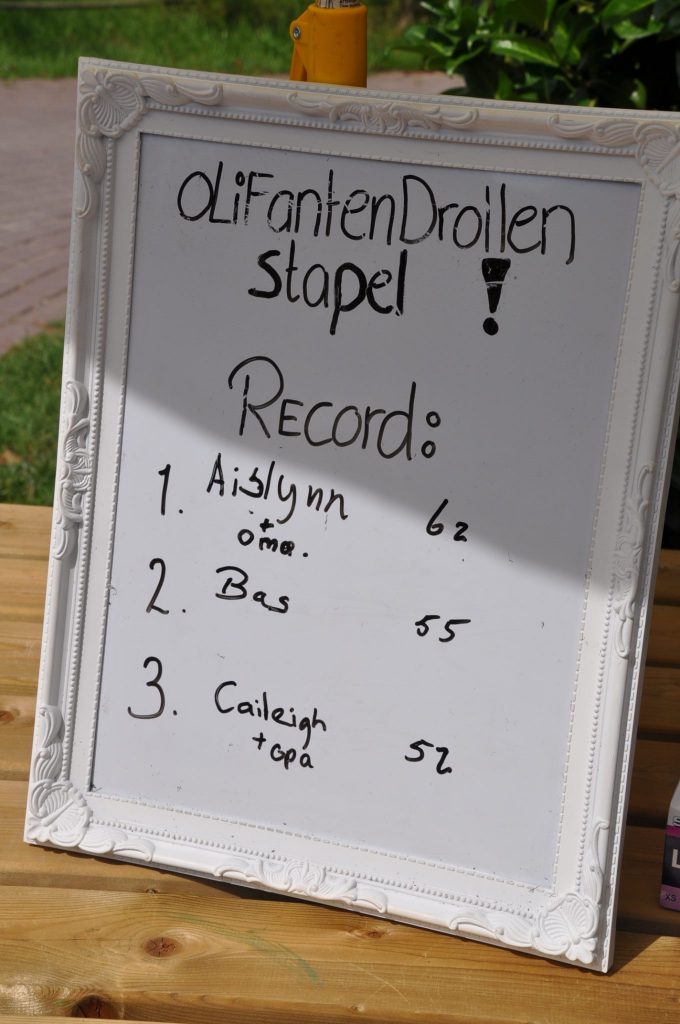 OLiFantenDrollen
Stapel !
RECORD:
1. Aislynn 62
+
oma.
2. Bas 55
3. Caileigh 52
+ opa
XS